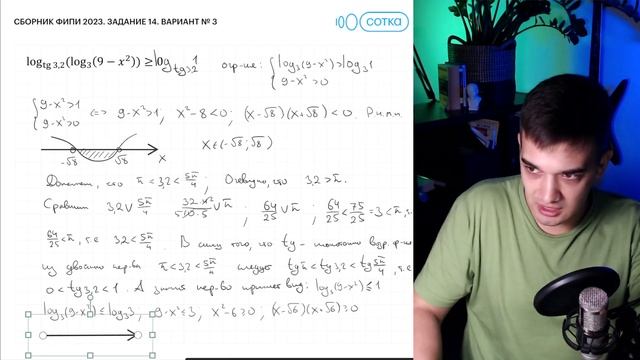 СБОРНИК ФИПИ 2023. ЗАДАНИЕ 14. ВАРИАНТ № 3
100 сотка
log_{tg 3,2}(log_3(9 − x²)) ≥ log_{tg 3,2} 1 огр-ие: { log_3(9-x²) > log_3 1
9-x² > 0
{ 9-x² > 1
9-x² > 0 <=> 9-x² > 1, x²-8 < 0; (x-√8)(x+√8) < 0. Р или
-√8 √8 x x ∈ (-√8; √8)
Докажем, что π < 3,2 < 5π/4; Очевидно, что 3,2 > π.
Сравним 3,2 ∨ 5π/4 ∨ π; 64/25 ∨ π; 64/25 < 75/25 = 3 < π, т.
64/25 < π, т.е 3,2 < 5π/4. В силу того, что tg - монотонно возр. ф-ия
из двойного нер-ва π < 3,2 < 5π/4 следует tg π < tg 3,2 < tg 5π/4, т.е.
0 < tg 3,2 < 1. А значит нер-во примет вид: log_3(9-x²) ≤ 1
log_3(9-x²) ≤ log_3 3, 9-x² ≤ 3, x²-6 ≥ 0; (x-√6)(x+√6) ≥ 0